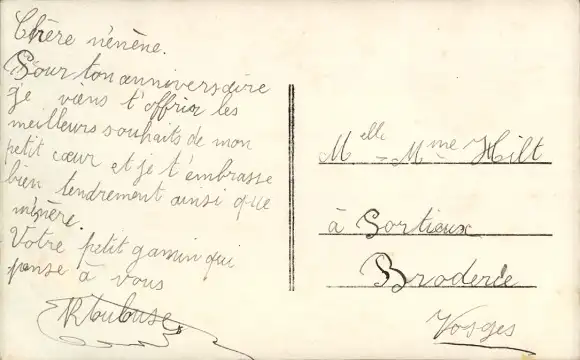 Chère n'énène.
Pour ton anniversaire
je viens t'offrir les
meilleurs souhaits de mon
petit cœur et je t'embrasse
bien tendrement ainsi que
Votre petit gamin qui
pense à vous
Melle - Mme Hilt
à Portieux
Broderie
Vosges